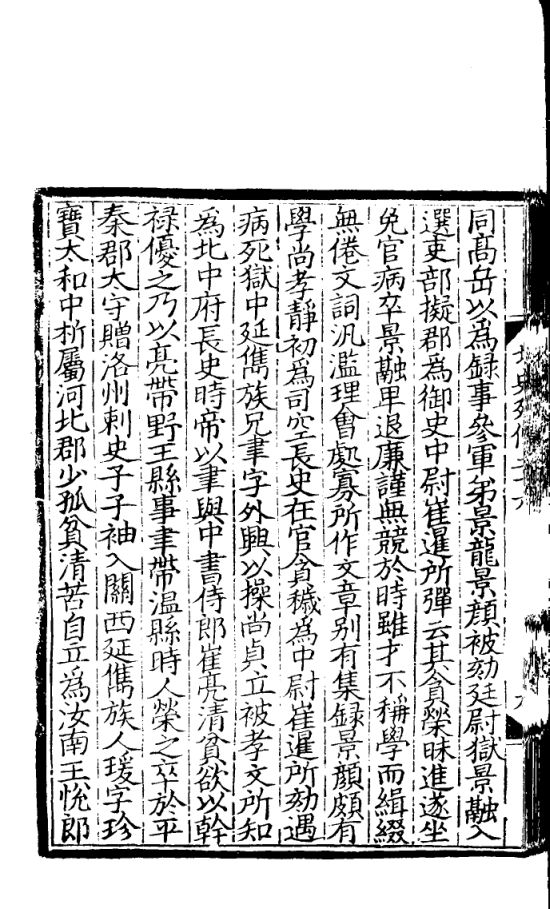 同高岳以爲録事參軍弟景龍景顔被劾廷尉獄景融入
選吏部擬郡爲御史中尉崔暹所彈云其貪榮昧進遂坐
免官病卒景融卑退廉謹無競於時雖才不稱學而緝綴
無倦文詞汎濫理會處寡所作文章别有集録景顔頗有
學尚孝靜初爲司空長史在官貪穢爲中尉崔暹所劾遇
病死獄中延雋族兄聿字外興以操尚貞立被孝文所知
爲北中府長史時帝以聿與中書侍郎崔亮清貧欲以幹
禄優之乃以亮帶野王縣事聿帶温縣時人榮之卒於平
秦郡太守贈洛州刺史子子袖入關西延雋族人瑗字珍
寶太和中析屬河北郡少孤貧清苦自立爲汝南王悅郎